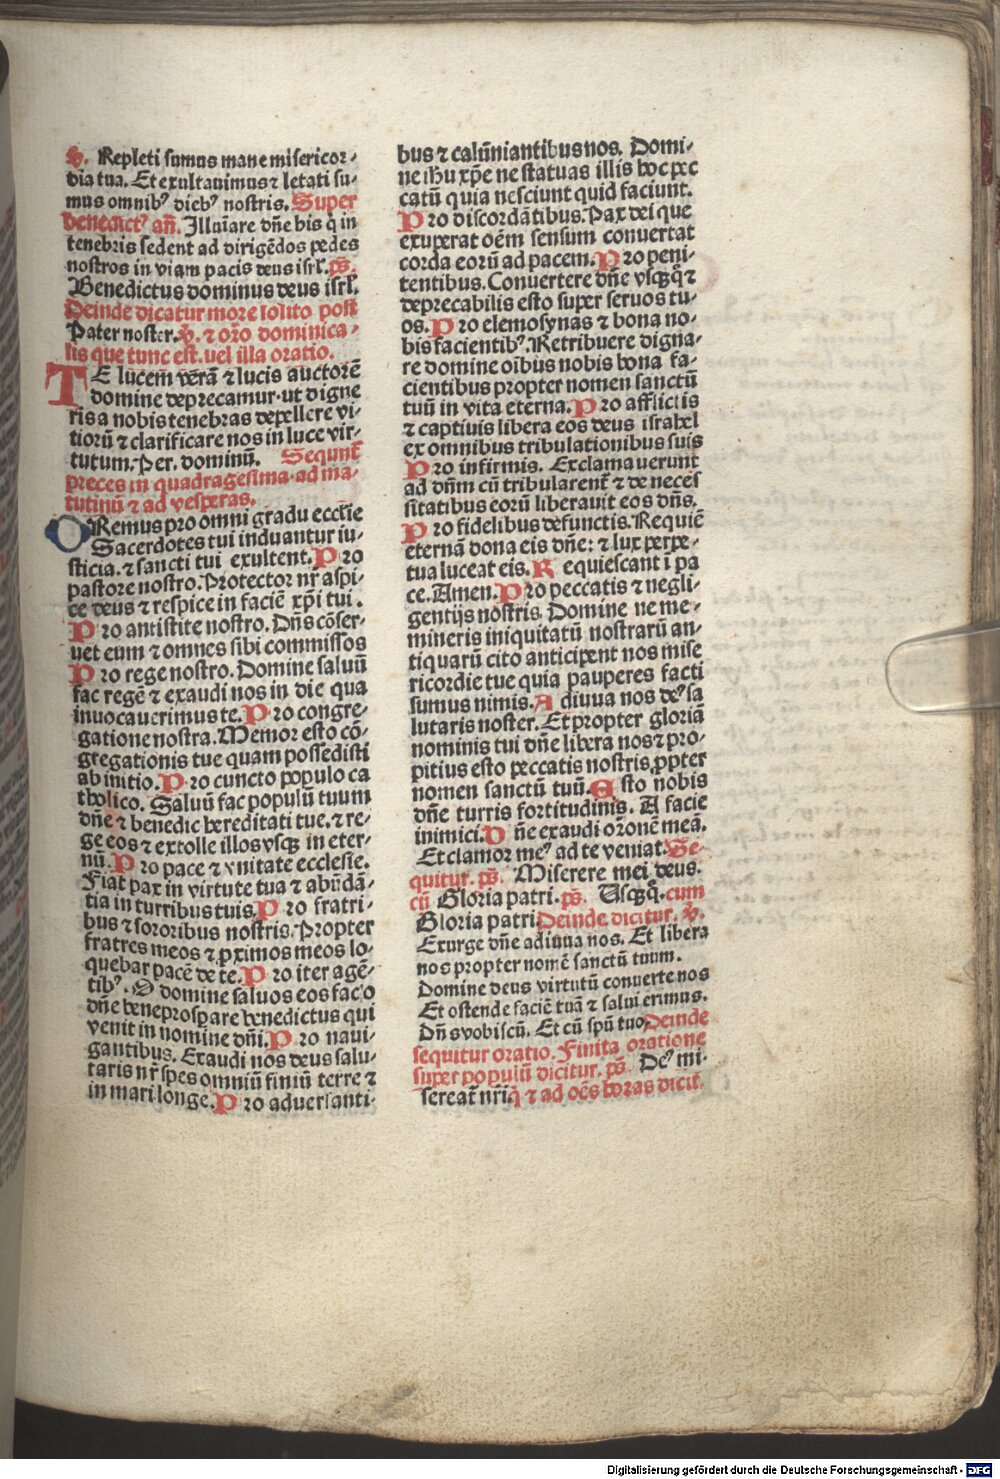 ℣. Repleti sumus mane misericor-
dia tua. Et exultauimus ⁊ letati su-
mus omnibꝰ diebꝰ nostris. Super
benedictꝰ añ. Illuīare dñe his q̇ in
tenebris sedent ad dirigēdos pedes
nostros in viam pacis deus isrl̄. ps̄.
Benedictus dominus deus isrl̄.
Deinde dicatur more solito post
Pater noster. ℣. ⁊ orō dominica-
lis que tunc est. vel illa oratio.
TE lucem verā ⁊ lucis auctorē
domine deprecamur. ut digne
ris a nobis tenebras depellere vi-
tiorū ⁊ clarificare nos in luce vir-
tutum. Per. dominū. Sequnt̄
preces in quadragesima. ad ma-
tutinū ⁊ ad vesperas.
ORemus pro omni gradu eccl̄ie
Sacerdotes tui induantur iu-
sticia. ⁊ sancti tui exultent. Pro
pastore nostro. Protector nr̄ aspi-
ce deus ⁊ respice in faciē xp̄i tui.
Pro antistite nostro. Dñs cōser-
uet eum ⁊ omnes sibi commissos
Pro rege nostro. Domine saluū
fac regē ⁊ exaudi nos in die qua
inuocauerimus te. Pro congre-
gatione nostra. Memor esto cō-
gregationis tue quam possedisti
ab initio. Pro cuncto populo ca
tholico. Saluū fac populū tuum
dñe ⁊ benedic hereditati tue. ⁊ re-
ge eos ⁊ extolle illos vsqꝫ in eter-
nū. Pro pace ⁊ vnitate ecclesie.
Fiat pax in virtute tua ⁊ abūdā-
tia in turribus tuis. Pro fratri-
bus ⁊ sororibus nostris. Propter
fratres meos ⁊ ꝓximos meos lo-
quebar pacē de te. Pro iter agē-
tibꝰ. O domine saluos eos fac o
dñe bene prospare benedictus qui
venit in nomine dñi. Pro naui-
gantibus. Exaudi nos deus salu-
taris nr̄ spes omniū finiū terre ⁊
in mari longe. Pro aduersanti-
bus ⁊ calūniantibus nos. Domi-
ne ihu xp̄e ne statuas illis hoc pec
catū quia nesciunt quid faciunt.
Pro discordātibus. Pax dei que
exuperat oēm sensum conuertat
corda eorū ad pacem. Pro peni-
tentibus. Conuertere dñe vsqꝫq̄ ⁊
deprecabilis esto super seruos tu-
os. Pro elemosynas ⁊ bona no-
bis facientibꝰ. Retribuere digna-
re domine oībus nobis bona fa-
cientibus propter nomen sanctū
tuū in vita eterna. Pro afflictis
⁊ captiuis libera eos deus israhel
ex omnibus tribulationibus suis
Pro infirmis. Exclamauerunt
ad dñm cū tribularent̄ ⁊ de neces
sitatibus eorū liberauit eos dñs.
Pro fidelibus defunctis. Requiē
eternā dona eis dñe: ⁊ lux perpe-
tua luceat eis. Requiescant ī pa
ce. Amen. Pro peccatis ⁊ negli-
gentijs nostris. Domine ne me-
mineris iniquitatū nostrarū an-
tiquarū cito anticipent nos mise
ricordie tue quia pauperes facti
sumus nimis. Adiuua nos deꝰ sa
lutaris noster. Et propter gloriā
nominis tui dñe libera nos ⁊ pro-
pitius esto peccatis nostris ꝓpter
nomen sanctū tuū. Esto nobis
dñe turris fortitudinis. A facie
inimici. Dñe exaudi orōnē meā.
Et clamor meꝰ ad te veniat. Se-
quitur. ps̄. Miserere mei deus.
cū Gloria patri. ps̄. Usqꝫq̄. cum
Gloria patri. Deinde dicitur. ℣.
Exurge dñe adiuua nos. Et libera
nos propter nomē sanctū tuum.
Domine deus virtutū conuerte nos
Et ostende faciē tuā ⁊ salui erimus.
Dñs vobiscū. Et cū spū tuo. Deinde
sequitur oratio. Finita oratione
super populū dicitur. ps̄. Deꝰ mi-
sereat̄ nr̄i q̇ ⁊ ad oēs horas dicit̄.
Digitalisierung gefördert durch die Deutsche Forschungsgemeinschaft - DFG